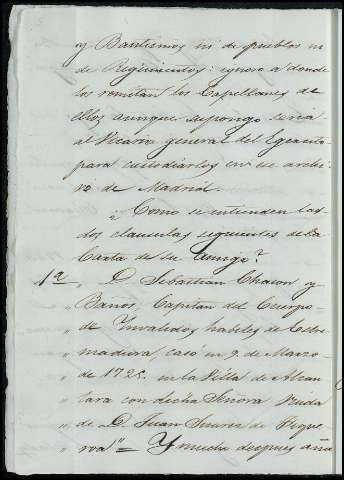 y Bautismos ni de pueblos ni
de Regimientos: ignoro a donde
los remitan los Capellanes de
ellos aunque supongo seria
al Vicario general del Egercito
para custodiarlos en su archi
vo de Madrid.
¿Como se entienden las
dos clausulas siguientes de la
Carta de su Amigo?
1ª „ D. Sebastian Chacon y
„ Baños Capitan del Cuerpo
„ de Ynvalidos habiles de Estre
„ madura casó en 9 de Marzo
„ de 172 en la Villa de Alcan
„ tara con dicha Señora Viuda
„ de D. Juan Suarez de Figue
„ roa" = Y mucho despues aña